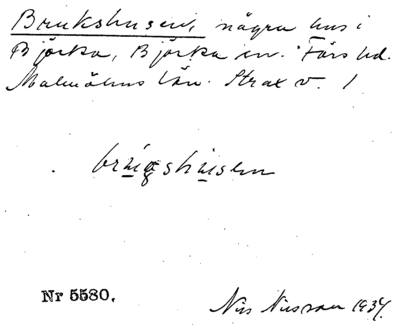 Brukshusen, några hus i
Björka, Björka sn. Färs hd.
Malmöhus län. Strax v. 1
brugshusen
Nr 5580.
Nils Nilsson 1934.